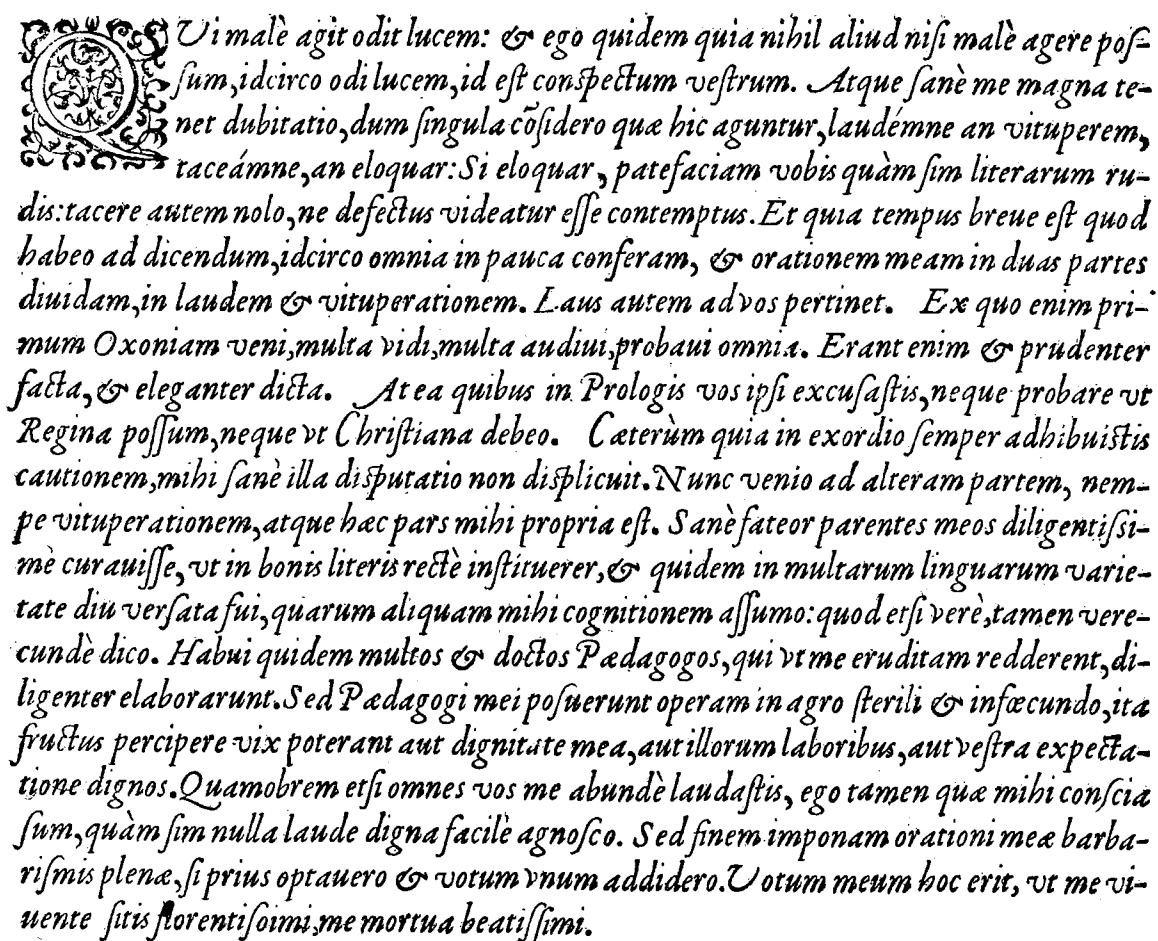 QUi malè agit odit lucem: & ego quidem quia nihil aliud niſi malè agere poſ-
ſum, idcirco odi lucem, id eſt conſpectum veſtrum. Atque ſanè me magna te-
net dubitatio, dum ſingula cõſidero quæ hic aguntur, laudémne an vituperem,
taceámne, an eloquar: Si eloquar, patefaciam vobis quàm ſim literarum ru-
dis: tacere autem nolo, ne defectus videatur eſſe contemptus. Et quia tempus breue eſt quod
habeo ad dicendum, idcirco omnia in pauca conferam, & orationem meam in duas partes
diuidam, in laudem & vituperationem. Laus autem ad vos pertinet. Ex quo enim pri-
mum Oxoniam veni, multa vidi, multa audiui, probaui omnia. Erant enim & prudenter
facta, & eleganter dicta. At ea quibus in Prologis vos ipſi excuſaſtis, neque probare vt
Regina poſſum, neque vt Chriſtiana debeo. Cæterùm quia in exordio ſemper adhibuiſtis
cautionem, mihi ſanè illa diſputatio non diſplicuit. Nunc venio ad alteram partem, nem-
pe vituperationem, atque hæc pars mihi propria eſt. Sanè fateor parentes meos diligentiſſi-
mè curauiſſe, vt in bonis literis rectè inſtituerer, & quidem in multarum linguarum varie-
tate diu verſata fui, quarum aliquam mihi cognitionem aſſumo: quod etſi verè, tamen vere-
cundè dico. Habui quidem multos & doctos Pædagogos, qui vt me eruditam redderent, di-
ligenter elaborarunt. Sed Pædagogi mei poſuerunt operam in agro ſterili & infœcundo, ita
fructus percipere vix poterant aut dignitate mea, aut illorum laboribus, aut veſtra expecta-
tione dignos. Quamobrem etſi omnes vos me abundè laudaſtis, ego tamen quæ mihi conſcia
ſum, quàm ſim nulla laude digna facilè agnoſco. Sed finem imponam orationi meæ barba-
riſmis plenæ, ſi prius optauero & votum vnum addidero. Votum meum hoc erit, vt me vi-
uente ſitis florentiſsimi, me mortua beatiſſimi.